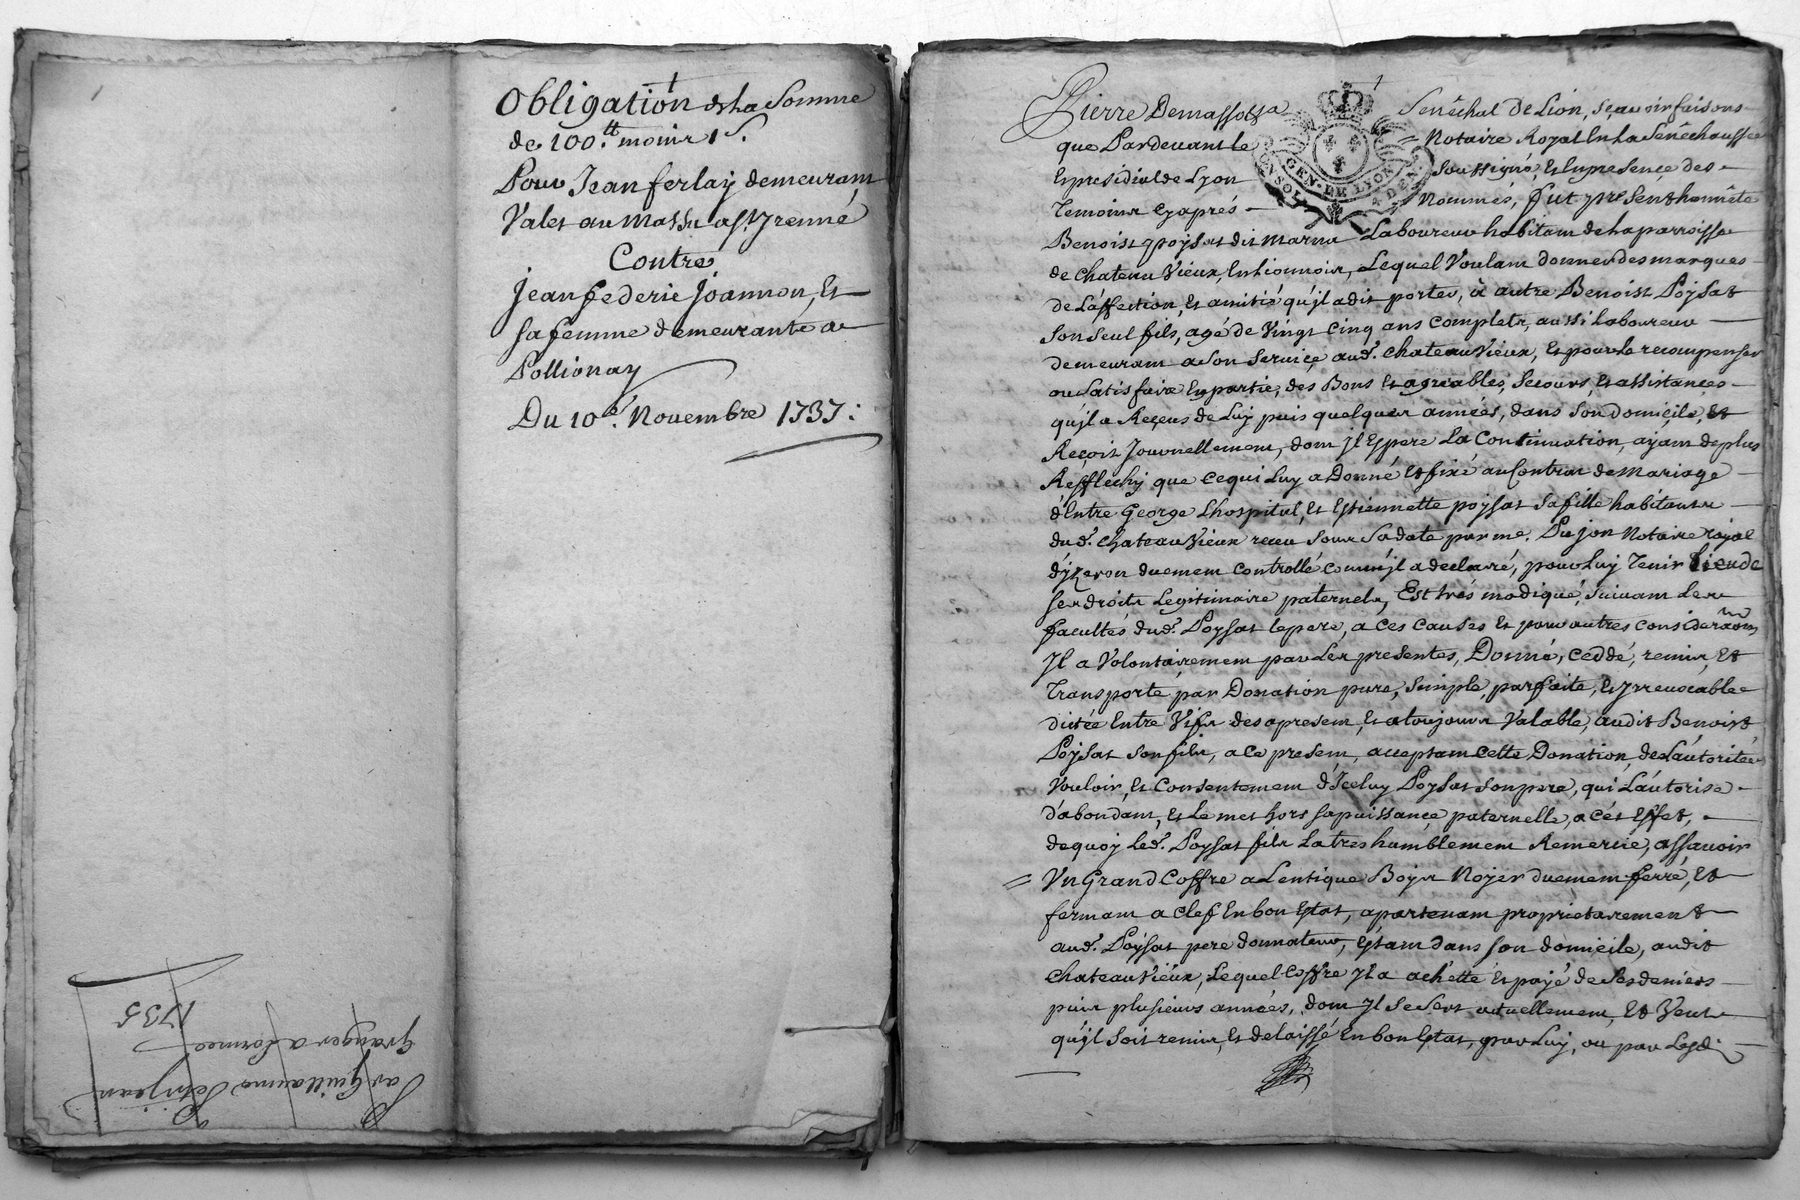 Obligation de La Somme
de 100.tt moins 1 s.
Pour Jean ferlay demeurant
Valet au Mas a st. Jrenné
Contre
Jean federic Joannon, Et
sa femme demeurante a
Pollionay
Du 10e. Novembre 1737:
Par Guillaume Petitjean
Granger a
1735
Pierre Demasso Senêchal de Lion, sçavoir faisons
que Pardevant le Notaire Royal En La Senêchaussee
Et presidial de Lyon Soussigné, Et En presence des
Temoins cy aprés Nommés, fut present honnête
GEN. DE LYON
Benoist poysat dit Marnu Laboureur habitant de la parroisse
de chateau Vieux, En Lionnois, Lequel Voulant donner des marques
de L'affection, Et amitié qu'jl a dit porter, à autre Benoist Poysat
Son Seul fils, agé de Vingt Cinq ans Complets, aussi Laboureur
demeurant a Son Service aud. chateau Vieux, Et pour Le recompenser
ou Satisfaire En partie, des Bons Et agreables, Secours, Et assistances
qu'jl a Reçeus de Luy puis quelques années, dans Son domicile, Et
Reçoit Journellement, dont jl Espere La Continuation, ayant de plus
Refflechy que ce qui Luy a Donné Et fixé au Contrat de Mariage
d'Entre George Lhospital, Et Estiennette poysat Sa fille habitants
dud. chateau Vieux receu Sous Sa date par me. Pujon Notaire royal
d'yzeron duement Controllé comm'jl a declaré, pour Luy Tenir Lieu de
Ses droits Legitimaire paternels, Est trés modique, Suivant Les
facultés dud. Poysat le pere, a ces causes Et pour autres consideraons,
Jl a Volontairement par Les presentes, Donné, ceddé, remis, Et
Transporté, par Donation pure, Simple, parfaite, Et jrrevocable
dittée Entre Vifs des apresent, Et a toujours Valable, audit Benoist
Poysat Son fils, a ce present, acceptant cette Donation, de L'autorité
Vouloir, Et Consentement d'Jceluy Poysat Son pere, qui L'autorise
d'abondant, Et Le met hors Sa puissance paternelle, a cét Effet,
de quoy Led. Poysat fils La tres humblement Remercie, assavoir
Un Grand Coffre a Lentique Boys Noyer duement ferré, Et
fermant a clef En bon Etat, apartenant proprietairement
aud. Poysat pere donnateur, Estant dans Son domicile, audit
chateau Vieux, Lequel Coffre Jl a achetté Et payé de Ses deniers
puis plusieurs années, dont Jl Se Sert actuellement, Et Veut
qu'jl Soit remis, Et delaissé En bon Etat, par Luy, ou par Lesd.